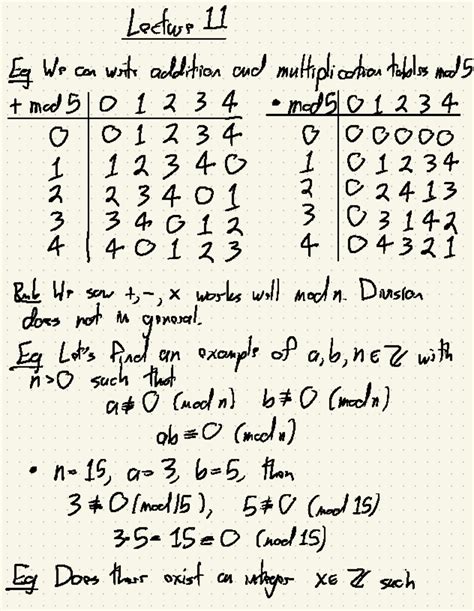 Lecture 11
Eg We can write addition and multiplication tables mod 5
+ mod 5 | 0 1 2 3 4    • mod 5 | 0 1 2 3 4
0 | 0 1 2 3 4    0 | 0 0 0 0 0
1 | 1 2 3 4 0    1 | 0 1 2 3 4
2 | 2 3 4 0 1    2 | 0 2 4 1 3
3 | 3 4 0 1 2    3 | 0 3 1 4 2
4 | 4 0 1 2 3    4 | 0 4 3 2 1
Rmk We saw +, -, × works well mod n. Division
does not in general.
Eg Let's find an example of a, b, n ∈ ℤ with
n>0 such that
a ≢ 0 (mod n) b ≢ 0 (mod n)
ab ≡ 0 (mod n)
• n=15, a=3, b=5, then
3 ≢ 0 (mod 15), 5 ≢ 0 (mod 15)
3·5 = 15 ≡ 0 (mod 15)
Eg Does there exist an integer x ∈ ℤ such